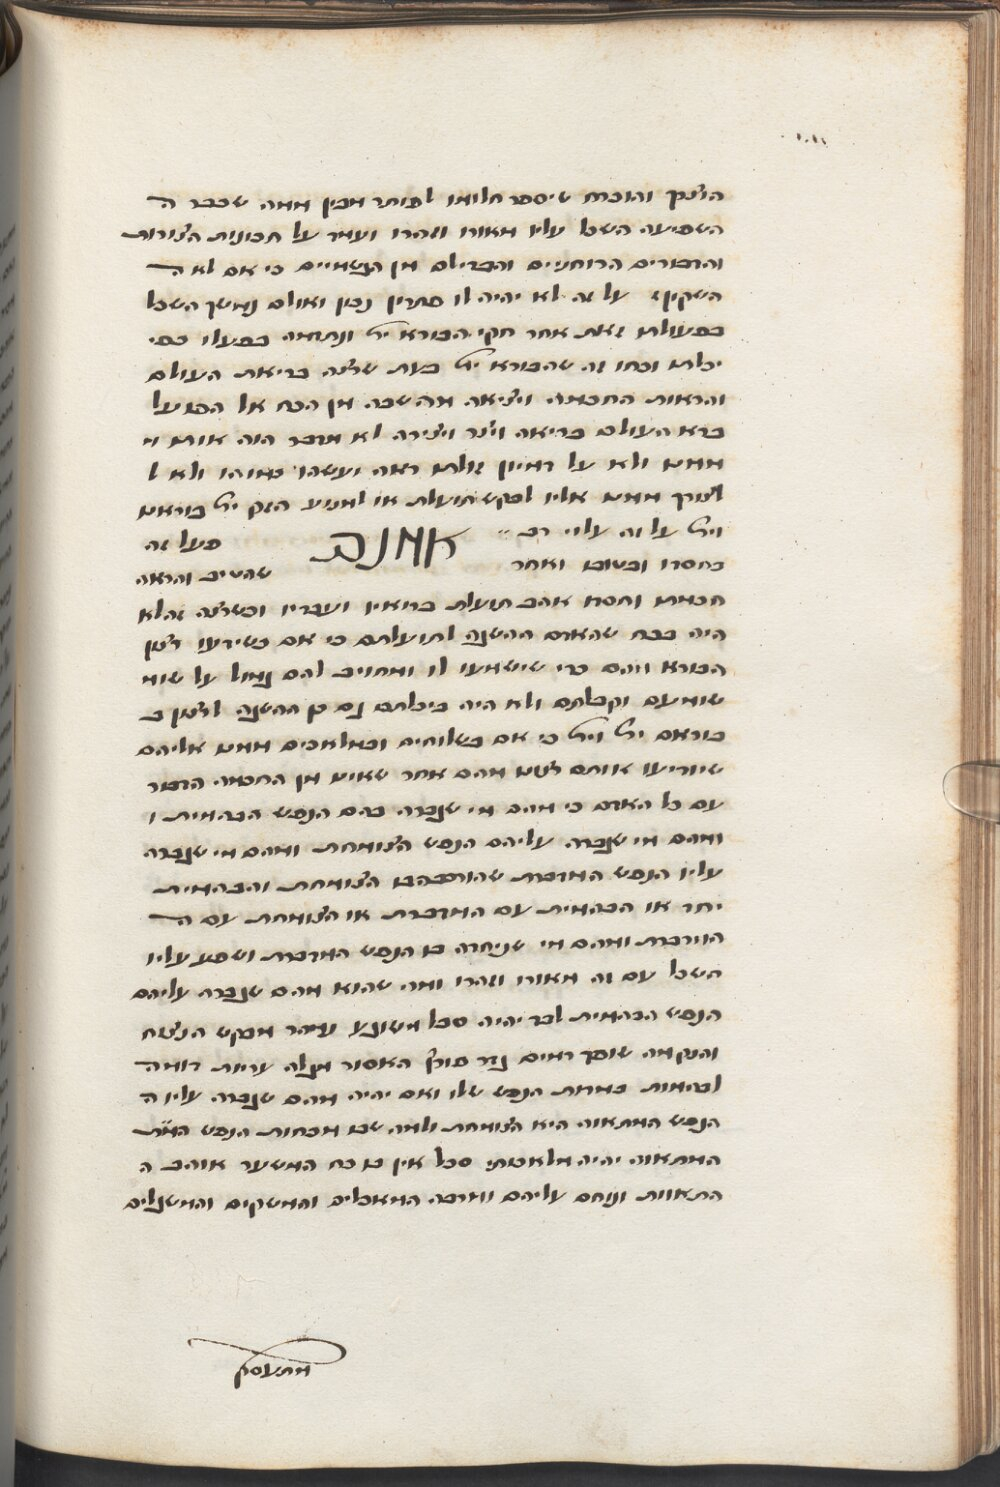 הוצרך והוכרח שיספר חלומו לפותר מבין ממה שכבר ה
השפיעה השכל עליו מאורו וזהרו ועמד על תכונות הצורות
והדבורים הרוחניים והבדילם מן הגשמיים כי אם לא ה
השקיף על זה לא יהיה לו פתרון נכון ואולם נמשך השכל
בפעולתו זאת אחר חקי הבורא ית' ונתדמה בפעלו כפי
יכלתו וכחו זה שהבורא ית' בעת שרצה בריאת העולם
והראות החכמה ויציאה מה שבה מן הכח אל הפועל
ברא העולם בריאה ויצר ויצירה לא מדבר הוה אותו מ
ממנו ולא על דמיון זולתו ראה ועשהו כמוהו ולא ל
לצורך ממנו אליו לבקש תועלת או למנוע הזק ית' בוראינו
וית' על זה עלוי רב אמנם פעל זה
בחסדו ובטובו ואחר שהטיב והראה
חכמתו וחסדו אהב תועלת ברואיו ועבדיו וכשרצה זה לא
היה בכח שהאדם ההשגה לתועלתם כי אם כשידעו רצון
הבורא מהם כדי שישמעו לו ומחויב להם גמול על שומ
שומעם וקבלתם ולא היה ביכלתם גם כן ההשגה לרצון ב
בוראם ית' וית' כי אם בשלוחים ובמלאכים ממנו אליהם
שיודיעו אותם רצונו מהם אחר שאינו מן החכמה הדבור
עם כל האדם כי מהם מי שגברה בהם הנפש הבהמית ו
ומהם מי שגברה עליהם הנפש הצומחת ומהם מי שגברה
עליו הנפש המדברת שהורכבה בו הצומחת והבהמית
יחד או הבהמית עם המדברת או הצומחת עם ה
המדברת ומהם מי שנחה בו הנפש המדברת ושפע עליו
השכל עם זה מאורו וזהרו ומה שהוא מהם שגברה עליהם
הנפש הבהמית לבד יהיה סכל משוגע נמהר מבקש הנצוח
והנקמה שופך דמים גדר פורץ האסור מגלה עריות דומה
לבהמות במדות הנפש שלו ואם יהיה מהם שגברה עליו ה
הנפש המתאוה היא הצומחת ולמה שבו מכחות הנפש
המתאוה יהיה סכל אין בו כח המשער אוהב ה
התאוות ונוחם עליהם ומרבה המאכלים והמשקים והמשגלים
מתעסק